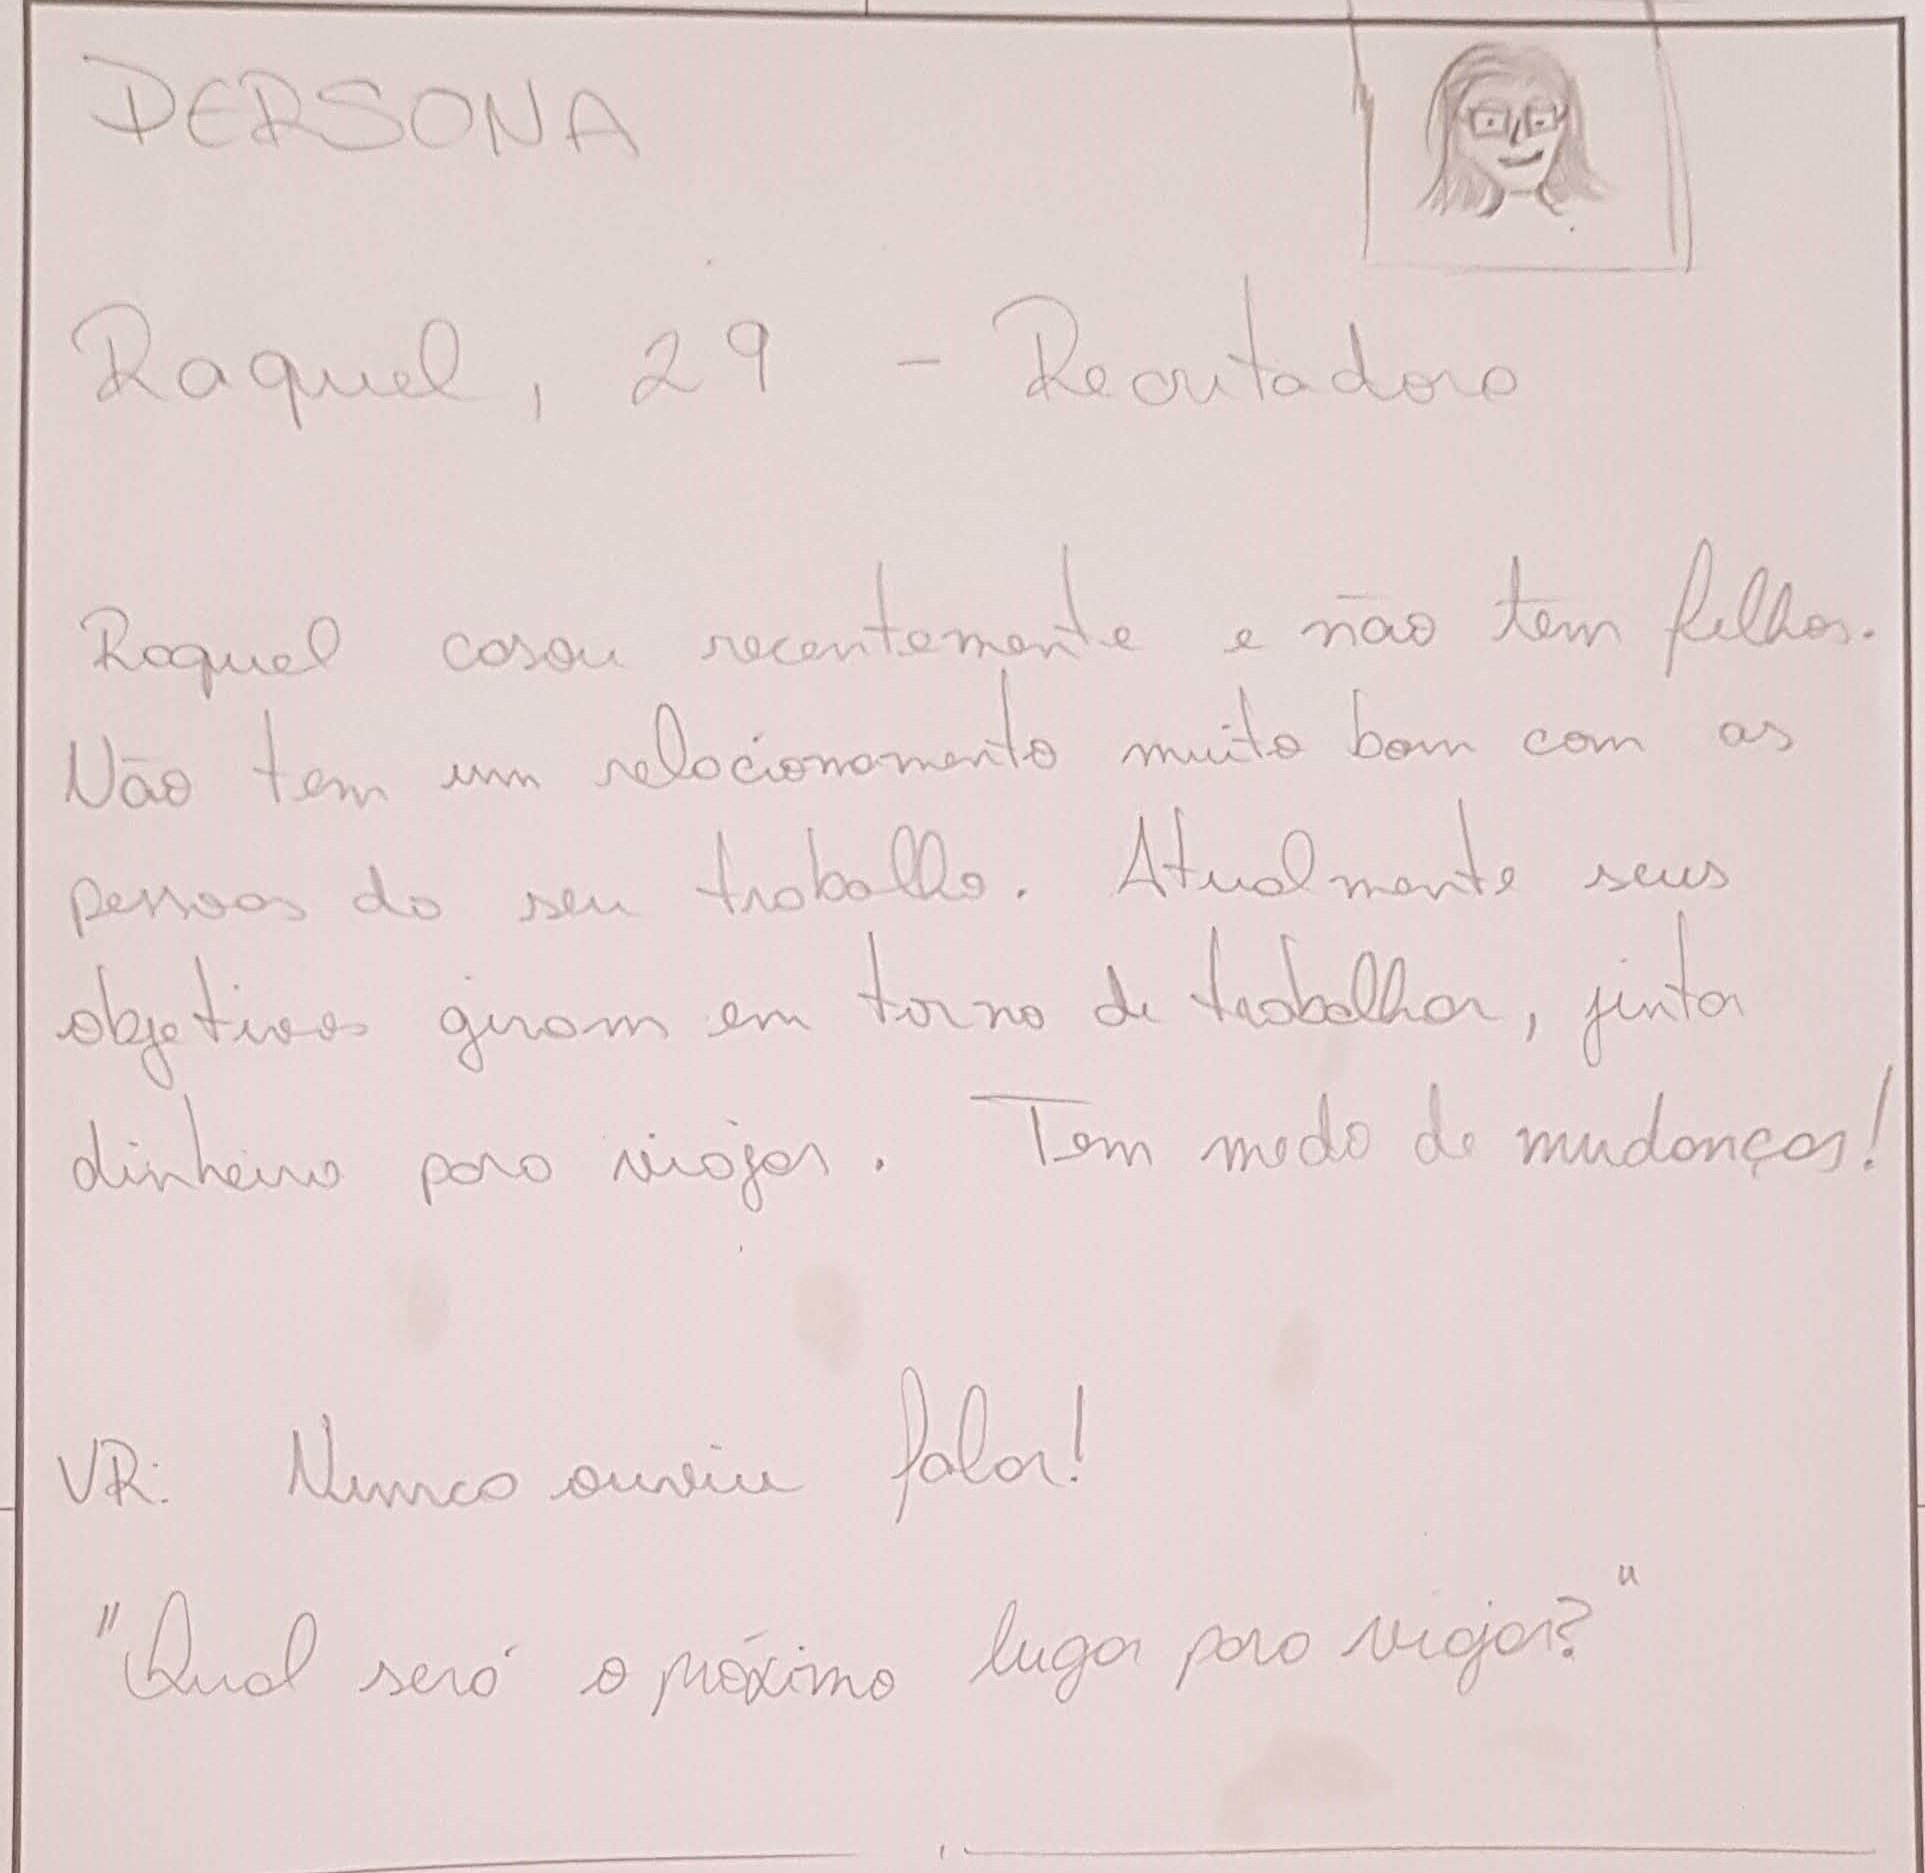 PERSONA
Raquel, 29 - Recrutadora
Raquel casou recentemente e não tem filhos.
Não tem um relacionamento muito bom com as
pessoas do seu trabalho. Atualmente seus
objetivos giram em torno de trabalhar, juntar
dinheiro para viajar. Tem medo de mudanças!
VR: Nunca ouviu falar!
"Qual será o próximo lugar para viajar?"